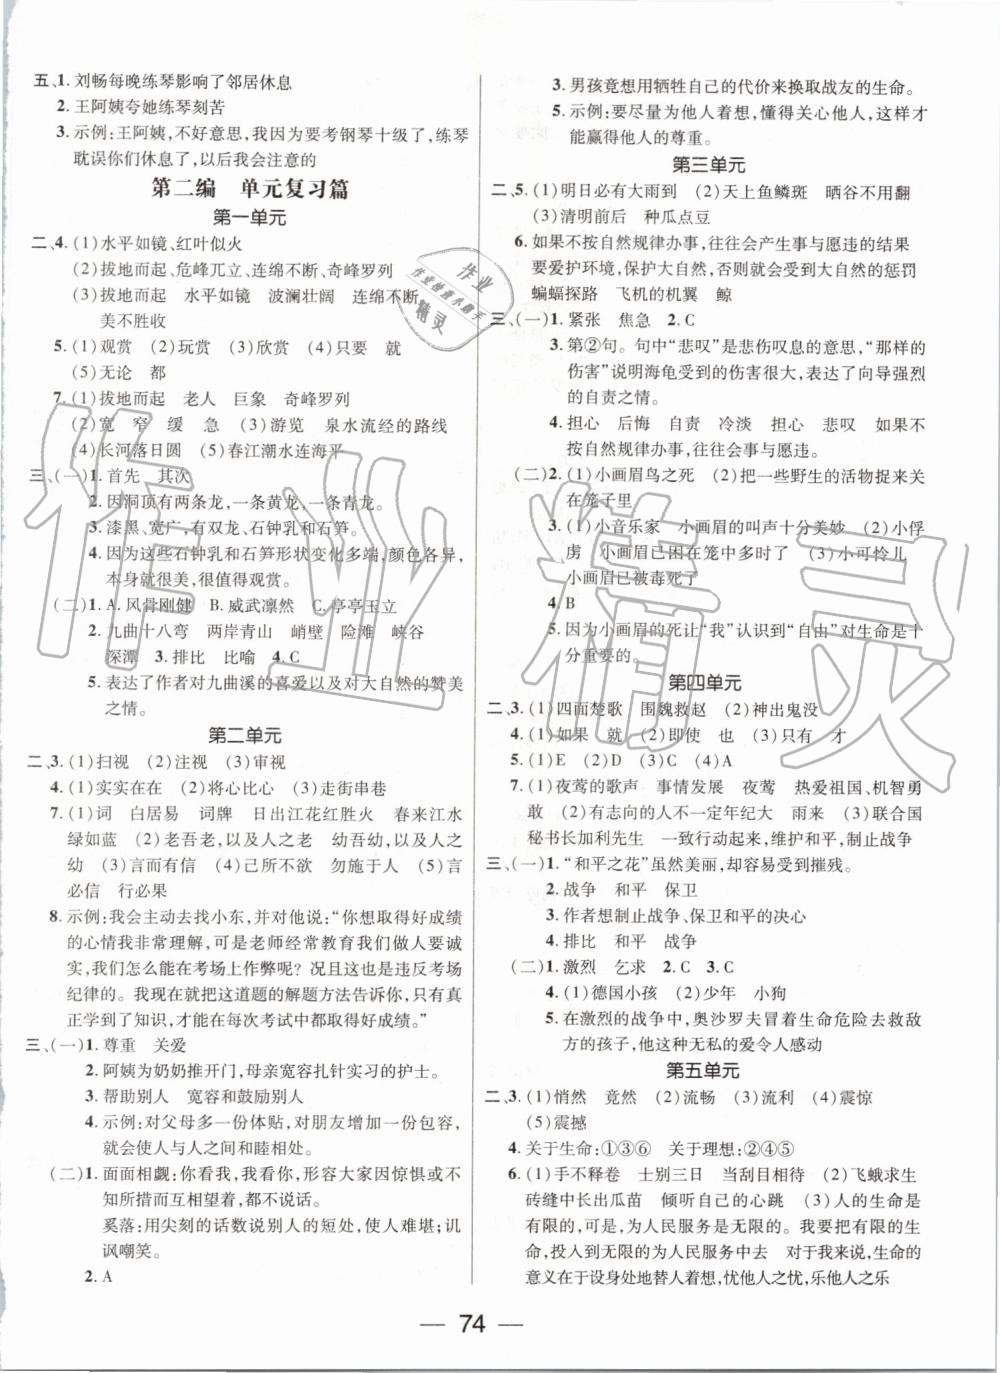 五、1. 刘畅每晚练琴影响了邻居休息
2. 王阿姨夸她练琴刻苦
3. 示例:王阿姨,不好意思,我因为要考钢琴十级了,练琴
耽误你们休息了,以后我会注意的
第二编 单元复习篇
第一单元
二、4. (1)水平如镜、红叶似火
(2)拔地而起、危峰兀立、连绵不断、奇峰罗列
(3)拔地而起 水平如镜 波澜壮阔 连绵不断
美不胜收
5. (1)观赏 (2)玩赏 (3)欣赏 (4)只要 就
(5)无论 都
7. (1)拔地而起 老人 巨象 奇峰罗列
(2)宽 窄 缓 急 (3)游览 泉水流经的路线
(4)长河落日圆 (5)春江潮水连海平
三、(一)1. 首先 其次
2. 因洞顶有两条龙,一条黄龙、一条青龙。
3. 漆黑、宽广,有双龙、石钟乳和石笋。
4. 因为这些石钟乳和石笋形状变化多端,颜色各异,
本身就很美,很值得观赏。
(二)1. A. 风骨刚健 B. 威武凛然 C. 亭亭玉立
2. 九曲十八弯 两岸青山 峭壁 险滩 峡谷
深潭 3. 排比 比喻 4. C
5. 表达了作者对九曲溪的喜爱以及对大自然的赞美
之情。
第二单元
二、3. (1)扫视 (2)注视 (3)审视
4. (1)实实在在 (2)将心比心 (3)走街串巷
7. (1)词 白居易 词牌 日出江花红胜火 春来江水
绿如蓝 (2)老吾老,以及人之老 幼吾幼,以及人之
幼 (3)言而有信 (4)己所不欲 勿施于人 (5)言
必信 行必果
8. 示例:我会主动去找小东,并对他说:“你想取得好成绩
的心情我非常理解,可是老师经常教育我们做人要诚
实,我们怎么能在考场上作弊呢?况且这也是违反考场
纪律的。我现在就把这道题的解题方法告诉你,只有真
正学到了知识,才能在每次考试中都取得好成绩。”
三、(一)1. 尊重 关爱
2. 阿姨为奶奶推开门,母亲宽容扎针实习的护士。
3. 帮助别人 宽容和鼓励别人
4. 示例:对父母多一份体贴,对朋友多一份包容,
就会使人与人之间和睦相处。
(二)1. 面面相觑:你看我,我看你,形容大家因惊惧或不
知所措而互相望着,都不说话。
奚落:用尖刻的话数说别人的短处,使人难堪;讥
讽嘲笑。
2. A
3. 男孩竟想用牺牲自己的代价来换取战友的生命。
5. 示例:要尽量为他人着想,懂得关心他人,这样才
能赢得他人的尊重。
第三单元
二、5. (1)明日必有大雨到 (2)天上鱼鳞斑 晒谷不用翻
(3)清明前后 种瓜点豆
6. 如果不按自然规律办事,往往会产生事与愿违的结果
要爱护环境,保护大自然,否则就会受到大自然的惩罚
蝙蝠探路 飞机的机翼 鲸
三、(一)1. 紧张 焦急 2. C
3. 第②句。句中“悲叹”是悲伤叹息的意思,“那样的
伤害”说明海龟受到的伤害很大,表达了向导强烈
的自责之情。
4. 担心 后悔 自责 冷淡 担心 悲叹 如果
不按自然规律办事,往往会事与愿违。
(二)1. (1)小画眉鸟之死 (2)把一些野生的活物捉来关
在笼子里
3. (1)小音乐家 小画眉的叫声十分美妙 (2)小俘
虏 小画眉已困在笼中多时了 (3)小可怜儿
小画眉已被毒死了
4. B
5. 因为小画眉的死让“我”认识到“自由”对生命是十
分重要的。
第四单元
二、3. (1)四面楚歌 围魏救赵 (2)神出鬼没
4. (1)如果 就 (2)即使 也 (3)只有 才
5. (1)E (2)D (3)B (4)C (5)A
7. (1)夜莺的歌声 事情发展 夜莺 热爱祖国、机智勇
敢 (2)有志向的人不一定年纪大 雨来 (3)联合国
秘书长加利先生 一致行动起来,维护和平,制止战争
三、(一)1. “和平之花”虽然美丽,却容易受到摧残。
2. 战争 和平 保卫
3. 作者想制止战争、保卫和平的决心
4. 排比 和平 战争
(二)1. 激烈 乞求 2. C 3. C
4. (1)德国小孩 (2)少年 小狗
5. 在激烈的战争中,奥沙罗夫冒着生命危险去救敌
方的孩子,他这种无私的爱令人感动
第五单元
二、3. (1)悄然 竟然 (2)流畅 (3)流利 (4)震惊
(5)震撼
4. 关于生命:①③⑥ 关于理想:②④⑤
6. (1)手不释卷 士别三日 当刮目相待 (2)飞蛾求生
砖缝中长出瓜苗 倾听自己的心跳 (3)人的生命是
有限的,可是,为人民服务是无限的。我要把有限的生
命,投入到无限的为人民服务中去 对于我来说,生命的
意义在于设身处地替人着想,忧他人之忧,乐他人之乐
— 74 —
作业
作业检查小助手
精灵
作业精灵